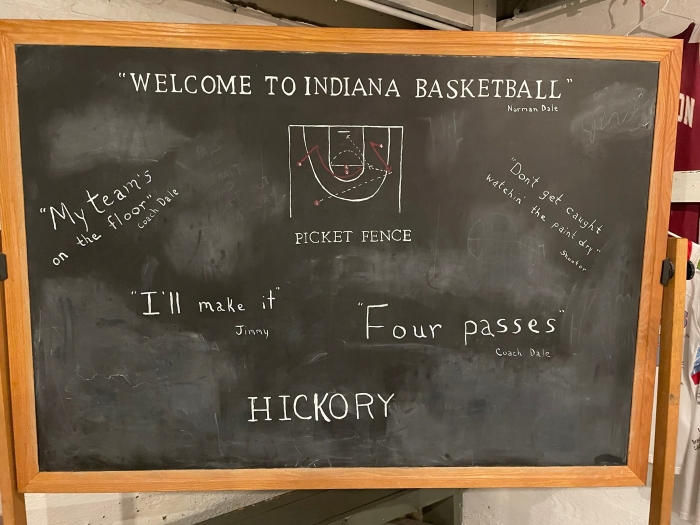 "WELCOME TO INDIANA BASKETBALL"
Norman Dale
"My team's
on the floor"
Coach Dale
PICKET FENCE
"Don't get caught
watchin' the paint dry"
Shooter
"I'll make it"
Jimmy
"Four passes"
Coach Dale
HICKORY
ON